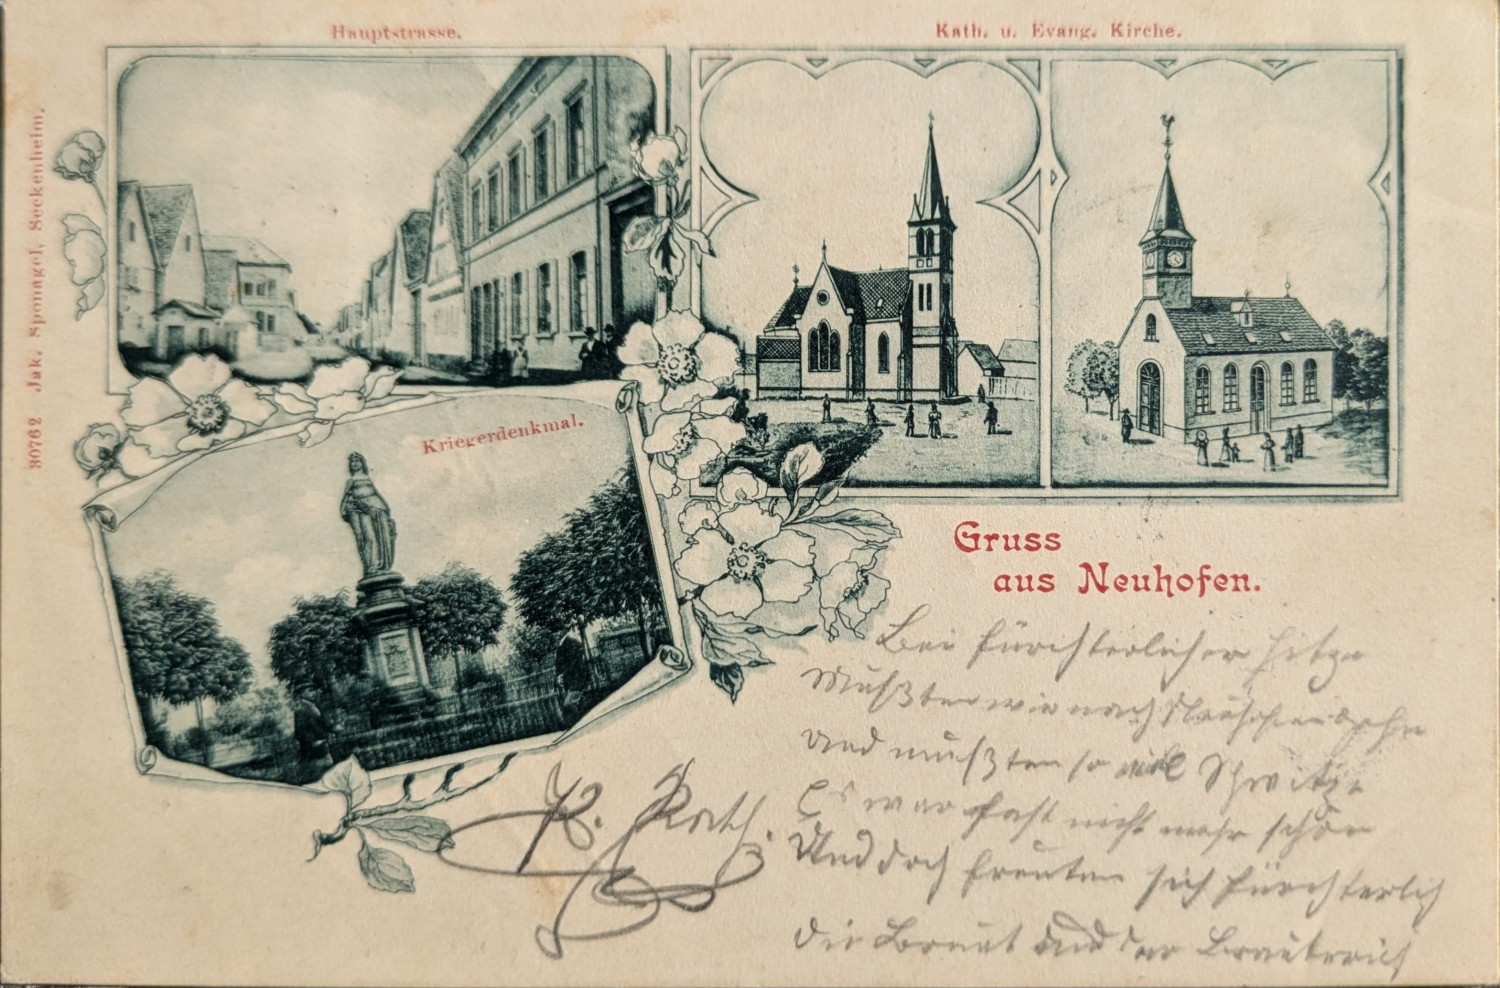 Hauptstrasse.
Kath. u. Evang. Kirche.
30762 Jak. Sponagel, Seckenheim.
Kriegerdenkmal.
Gruss
aus Neuhofen.
Bei fürchterlicher Hitze
Mußten wir nach
und mußten so viel Schwitze
Es war fast nicht mehr schön
Und doch freuten sich fürchterlich
die Braut und der